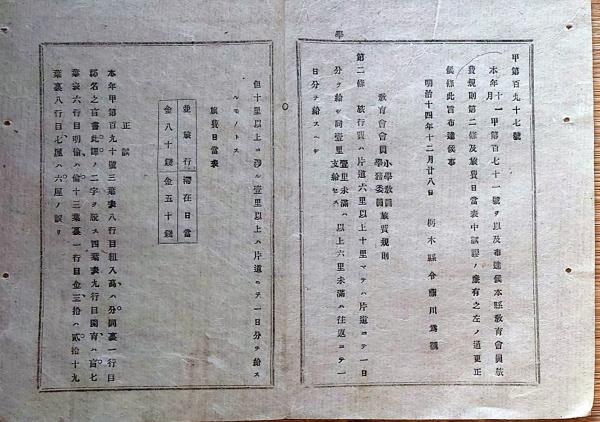 甲第百九十七號
本年十一月甲第百七十一號ヲ以及布達候本縣敎育會員旅
費規則第二條及旅費日當表中誤謬ノ廉有之左ノ通更正
候條此旨布達候事
明治十四年十二月廿八日 栃木縣令藤川爲親
敎育會會員小學敎員學務委員旅費規則
第二條 旅行費ハ片道六里以上十里マテハ片道ニテ一日
分ヲ給シ同壹里以上六里未滿ハ往返ニテ一
日分ヲ給ス
壹里未滿ハ支給セス
學
但十里以上ニ渉ル壹里以上ハ片道ニテ一日分ヲ給ス
ルモノトス
旅費日當表
並旅行 滯在日當
金八十錢 金五十錢
正誤
本年甲第百九十號三葉表八行目組入高ハ分同裏一行目
認名之
ノ二字ヲ脱ス四葉表九行目
七
葉表六行目明倫ハ倫十三葉裏一行目金三拾ハ貳拾十九
葉裏八行目七厘ハ六厘ノ誤リ